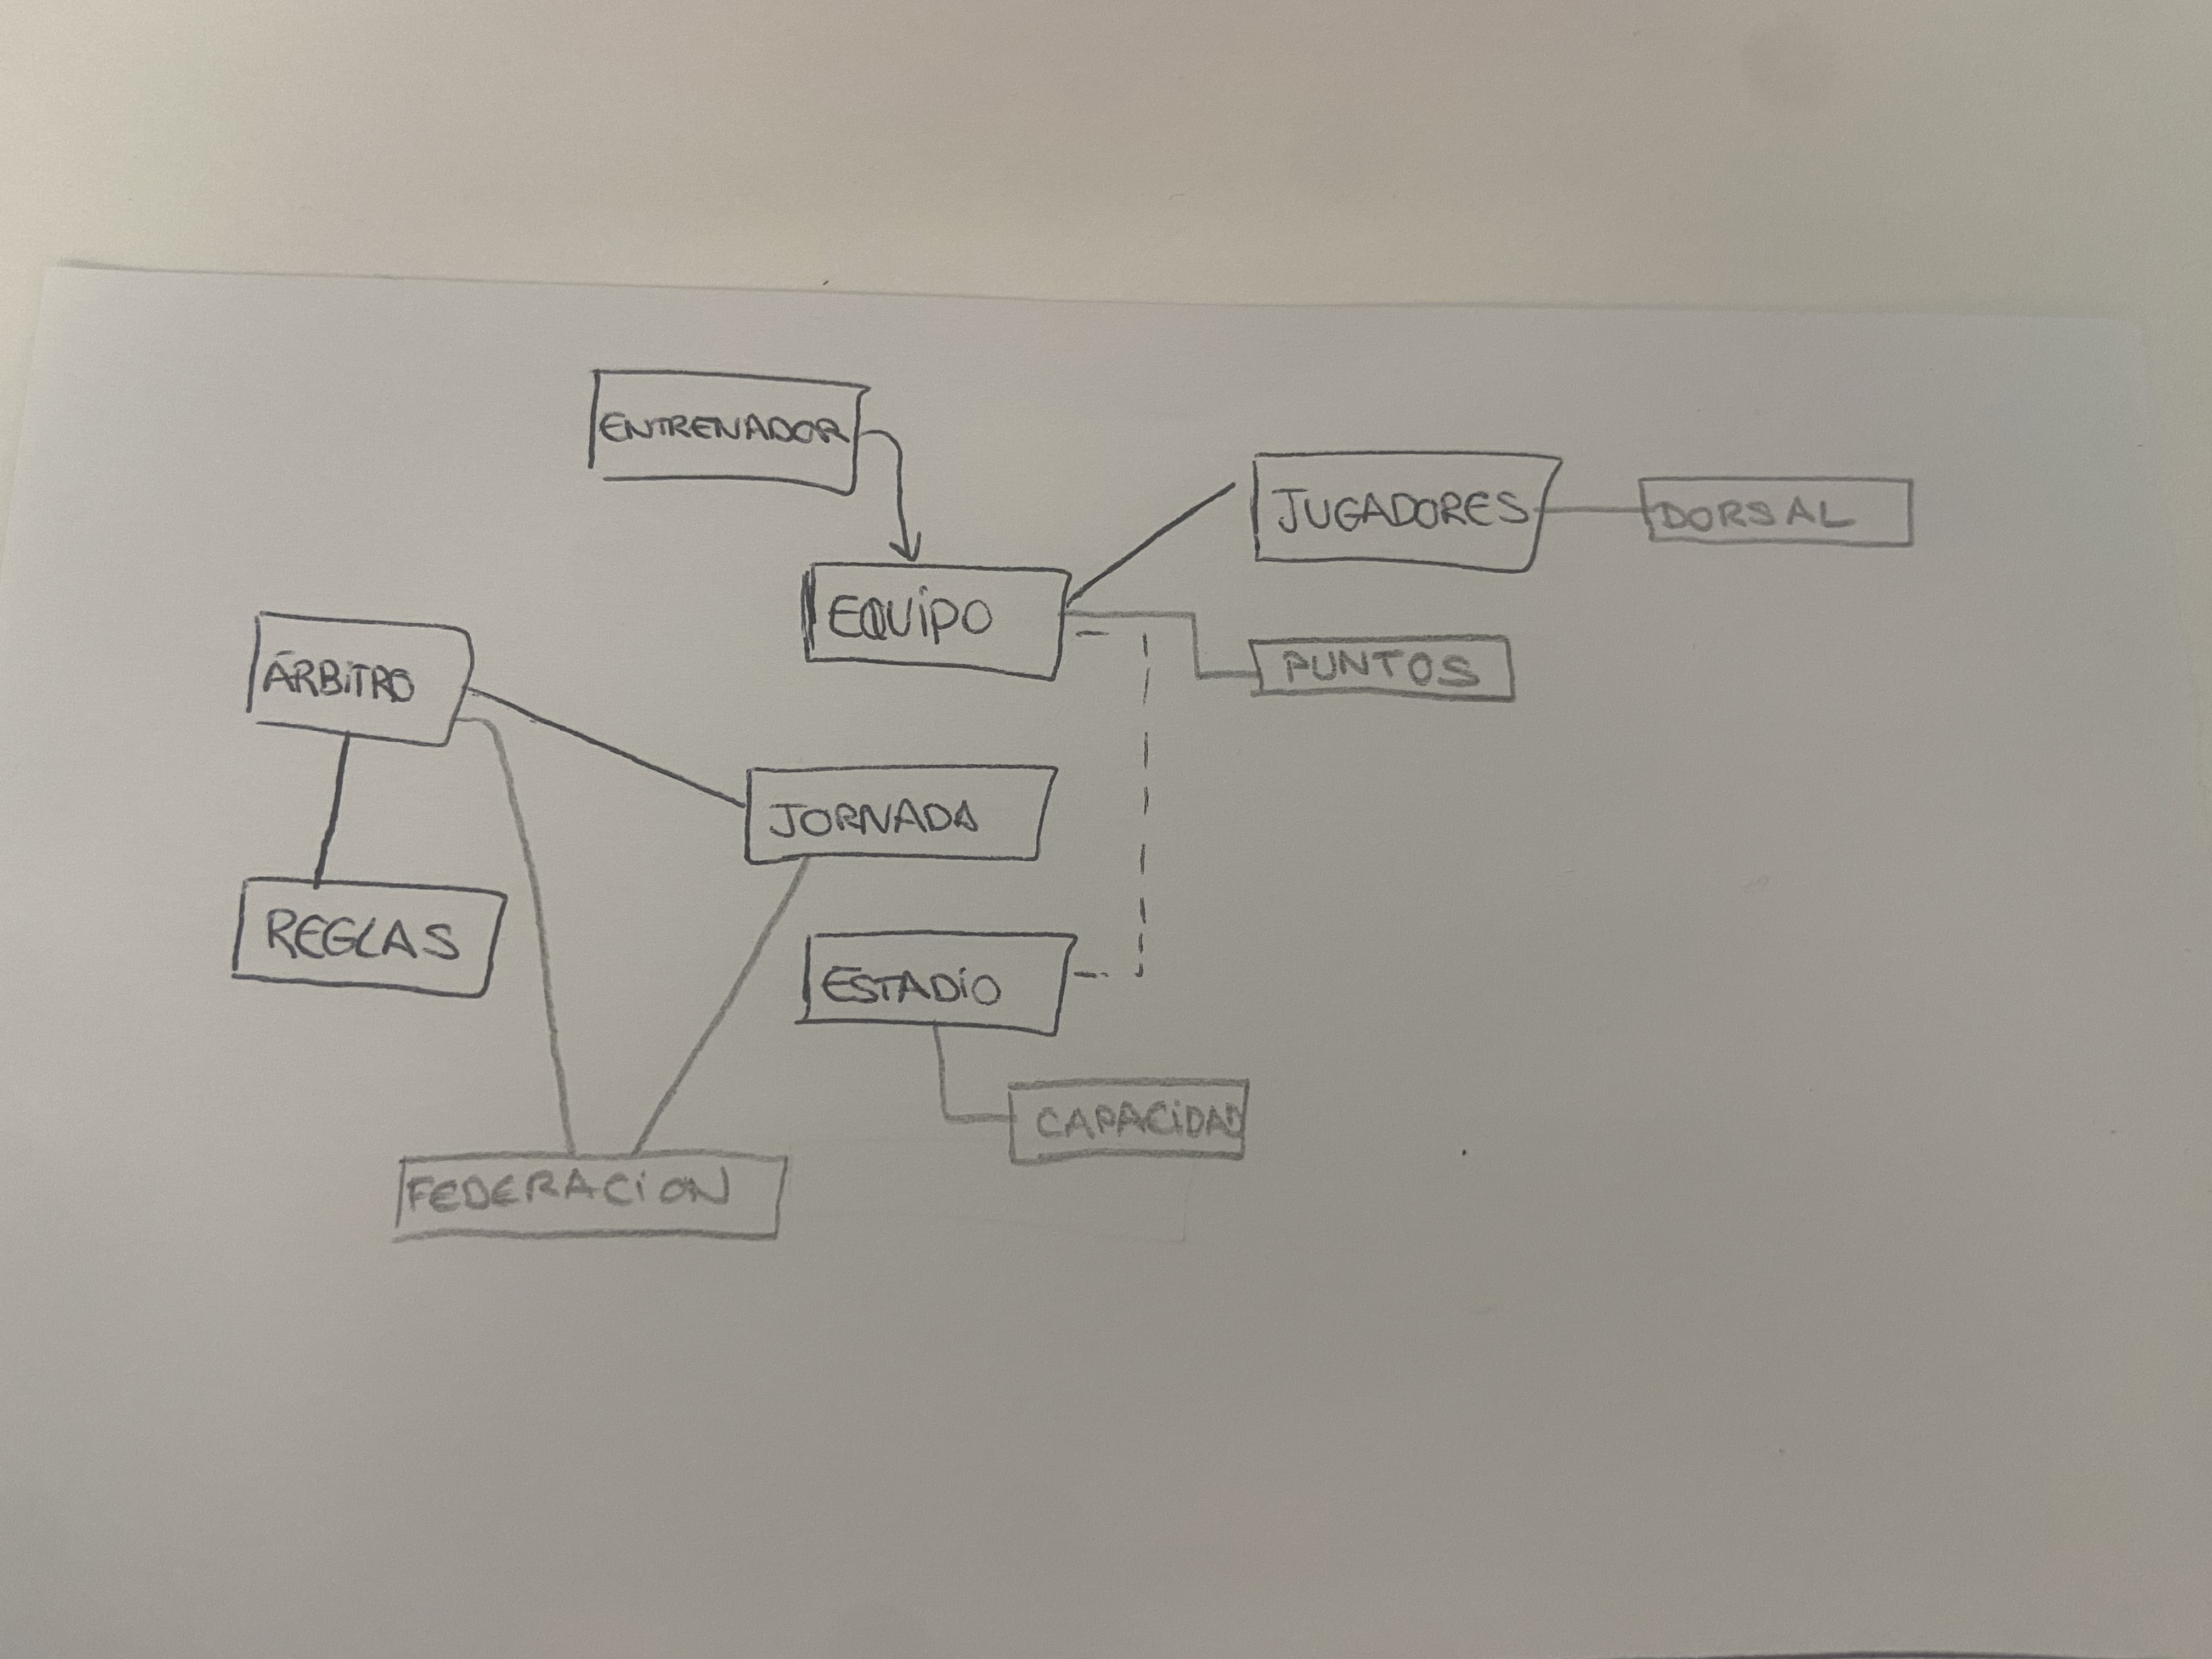 ENTRENADOR
JUGADORES
DORSAL
EQUIPO
PUNTOS
ÁRBITRO
JORNADA
REGLAS
ESTADIO
CAPACIDAD
FEDERACION